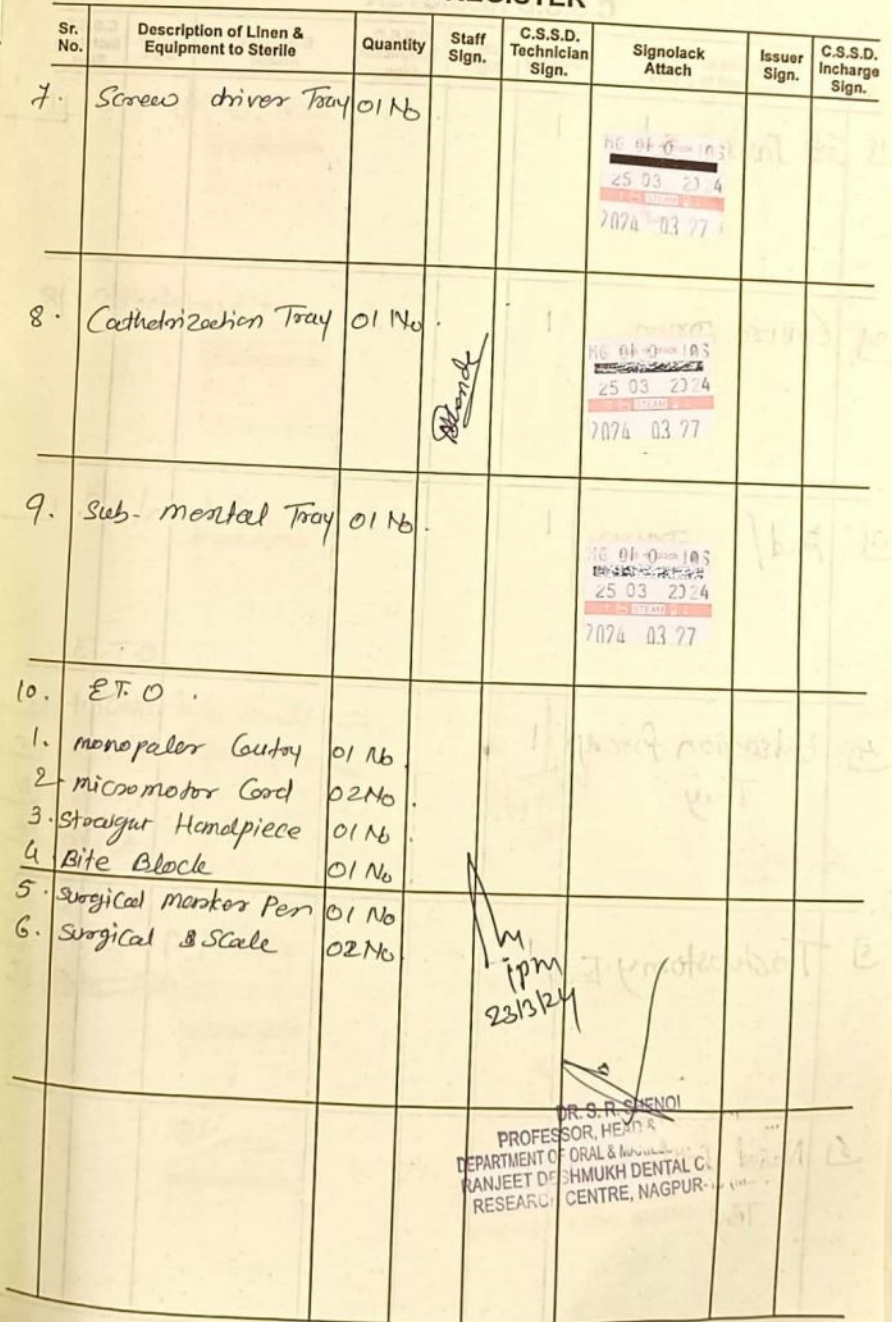 REGISTER
Sr. No. Description of Linen & Equipment to Sterile Quantity Staff Sign. C.S.S.D. Technician Sign. Signolack Attach Issuer Sign. C.S.S.D. Incharge Sign.
7. Screw driver Tray 01 No
25 03 2024
STEAM
2024 03 27
8. Cathetrization Tray 01 No.
25 03 2024
STEAM
2024 03 27
9. Sub-mental Tray 01 No.
25 03 2024
STEAM
2024 03 27
10. E.T.O.
1. monopaler Cautry 01 No
2 micromotor Cord 02 No.
3. Straigur Handpiece 01 No
4 Bite Block 01 No
5. Surgical Marker Pen 01 No
6. Surgical Scale 02 No
1pm
23/3/24
DR. S. R. SHENOI
PROFESSOR, HEAD &
DEPARTMENT OF ORAL &
RANJEET DESHMUKH DENTAL C
RESEARCH CENTRE, NAGPUR-